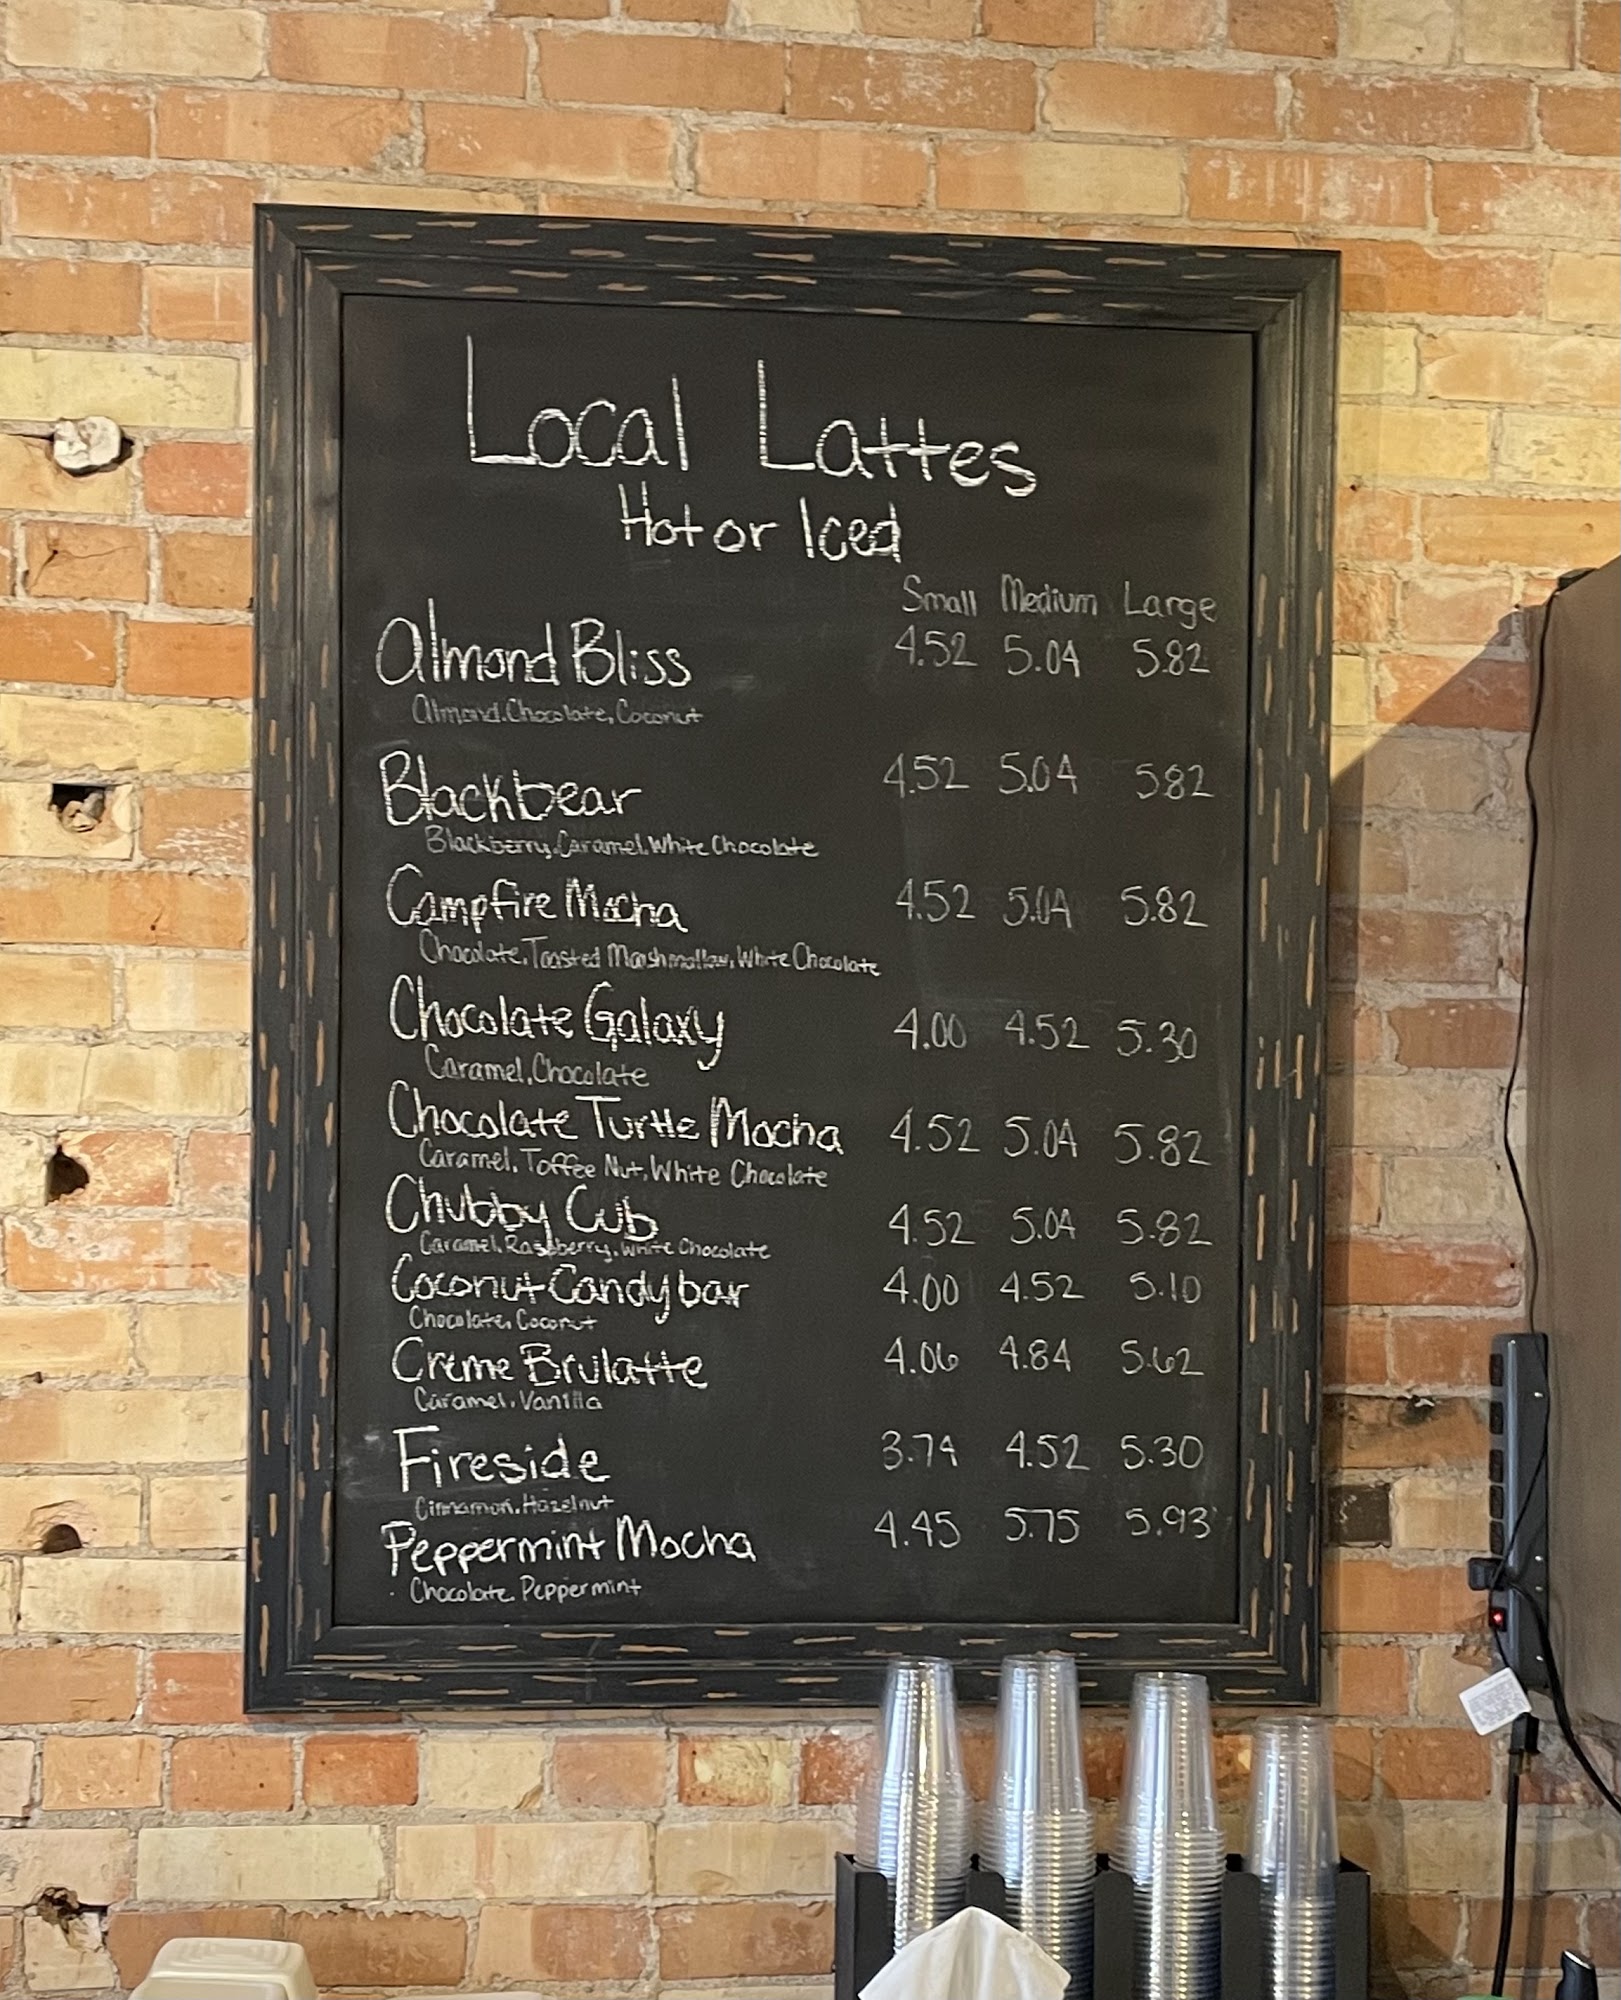 Local Lattes
Hot or Iced
Small Medium Large
Almond Bliss 4.52 5.04 5.82
Almond, Chocolate, Coconut
Blackbear 4.52 5.04 5.82
Blackberry, Caramel, White Chocolate
Campfire Mocha 4.52 5.04 5.82
Chocolate, Toasted Marshmallow, White Chocolate
Chocolate Galaxy 4.00 4.52 5.30
Caramel, Chocolate
Chocolate Turtle Mocha 4.52 5.04 5.82
Caramel, Toffee Nut, White Chocolate
Chubby Cub 4.52 5.04 5.82
Caramel, Raspberry, White Chocolate
Coconut Candybar 4.00 4.52 5.10
Chocolate, Coconut
Créme Brulatte 4.06 4.84 5.62
Caramel, Vanilla
Fireside 3.74 4.52 5.30
Cinnamon, Hazelnut
Peppermint Mocha 4.45 5.75 5.93
Chocolate, Peppermint